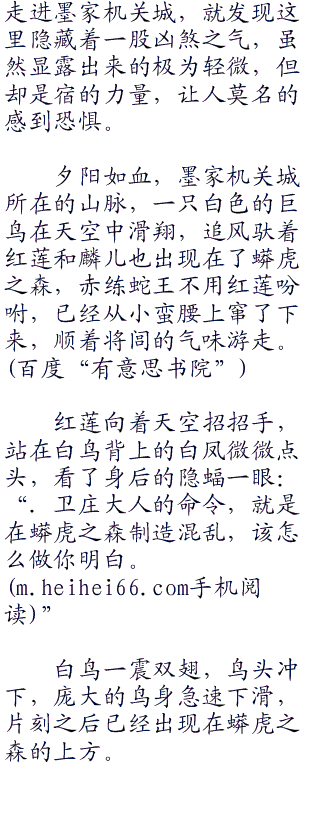 走进墨家机关城，就发现这
里隐藏着一股凶煞之气，虽
然显露出来的极为轻微，但
却是宿的力量，让人莫名的
感到恐惧。
夕阳如血，墨家机关城
所在的山脉，一只白色的巨
鸟在天空中滑翔，追风驮着
红莲和麟儿也出现在了蟒虎
之森，赤练蛇王不用红莲吩
咐，已经从小蛮腰上窜了下
来，顺着将闾的气味游走。
(百度“有意思书院”)
红莲向着天空招招手，
站在白鸟背上的白凤微微点
头，看了身后的隐蝠一眼：
“．卫庄大人的命令，就是
在蟒虎之森制造混乱，该怎
么做你明白。
(m.heihei66.com手机阅
读)”
白鸟一震双翅，鸟头冲
下，庞大的鸟身急速下滑，
片刻之后已经出现在蟒虎之
森的上方。